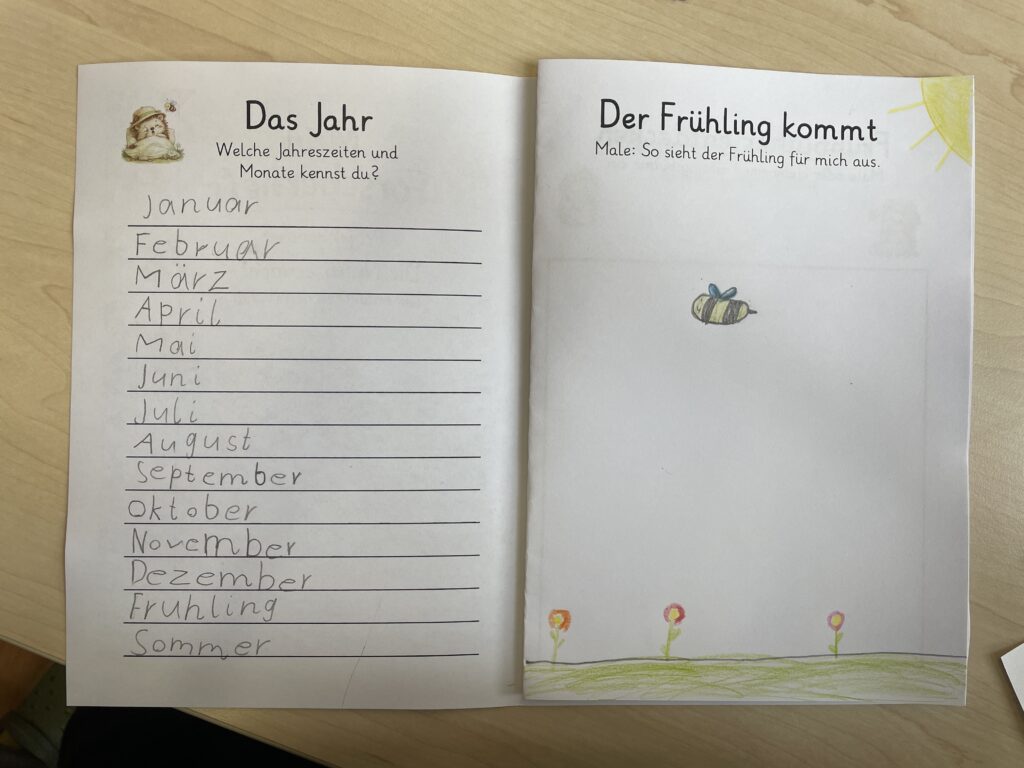 Das Jahr
Welche Jahreszeiten und
Monate kennst du?
Januar
Februar
März
April
Mai
Juni
Juli
August
September
Oktober
November
Dezember
Fruhling
Sommer
Der Frühling kommt
Male: So sieht der Frühling für mich aus.